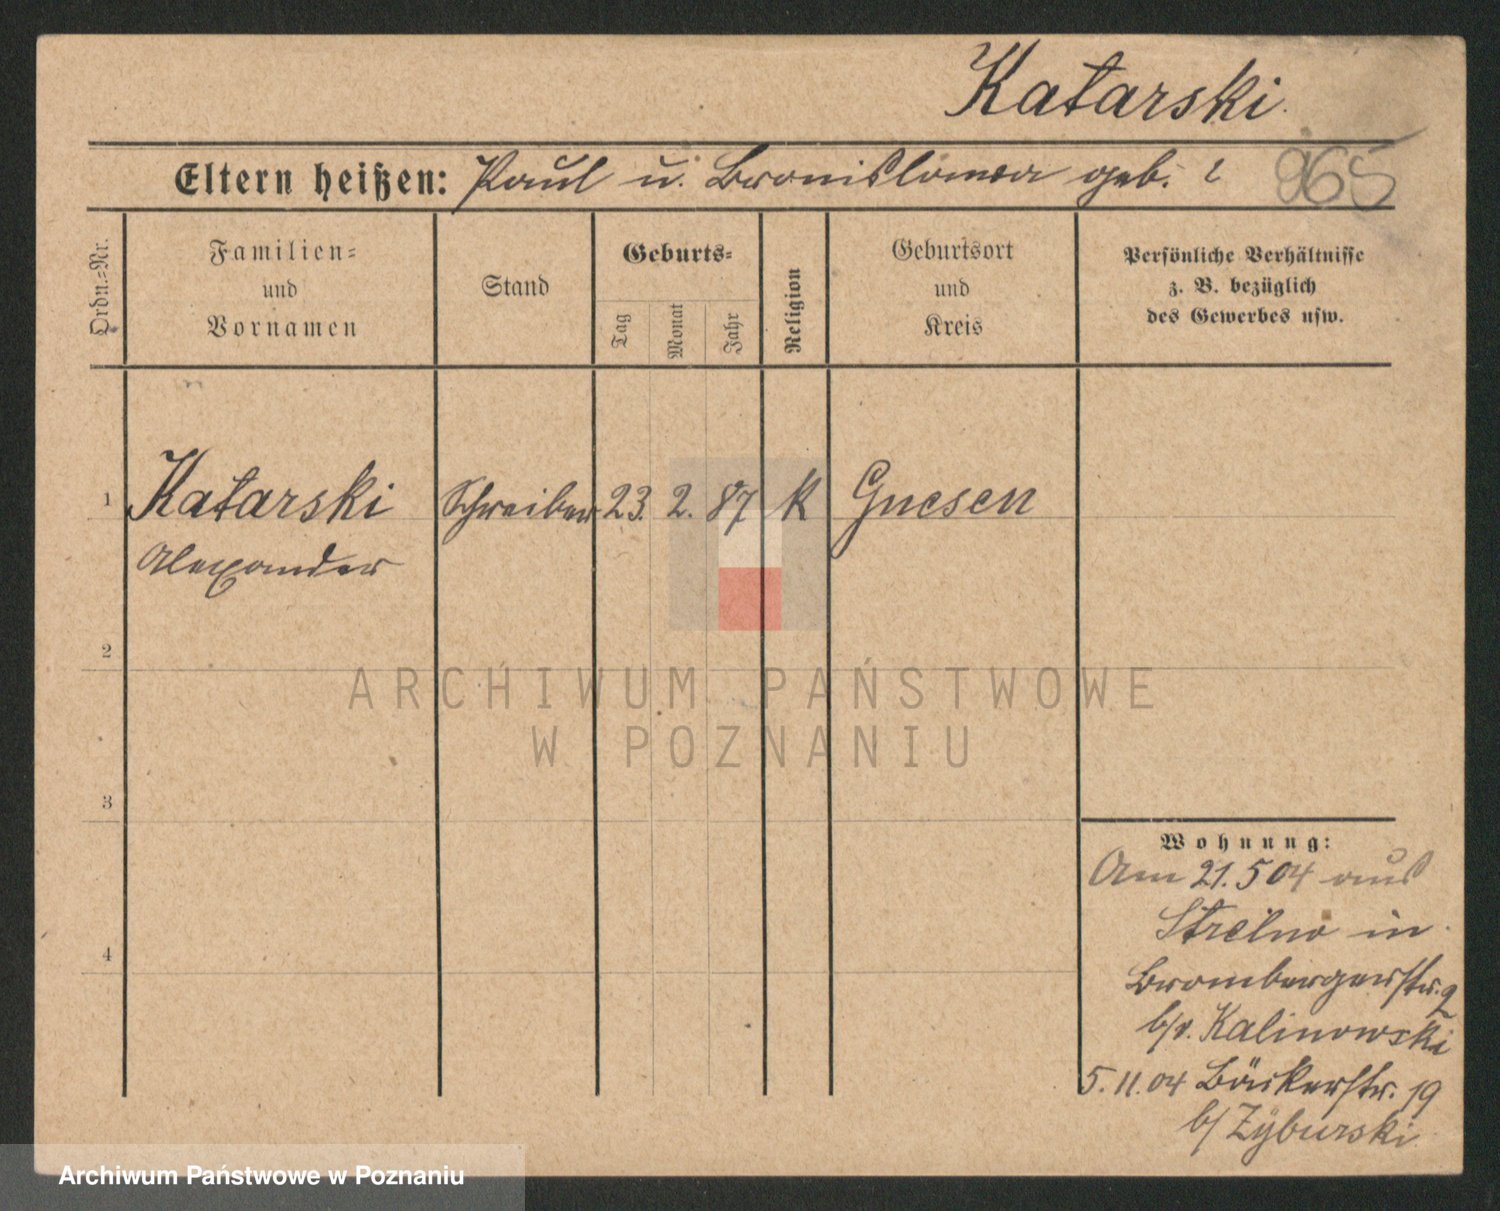 Katarski.
Eltern heißen: Paul u. Bronislawa geb. ?
965
Ordn.-Nr.
Familien-
und
Vornamen
Stand
Geburts-
Tag
Monat
Jahr
Religion
Geburtsort
und
Kreis
Persönliche Verhältnisse
z. B. bezüglich
des Gewerbes usw.
1 Katarski Schreiber 23. 2. 87 K Gnesen
Alexander
2
3
4
ARCHIWUM PAŃSTWOWE
W POZNANIU
Wohnung:
Am 21.5 04 aus
Strelno in
Brombergerstr. 2
b/ Kalinowski
5.11.04 Bäckerstr. 19
b/ Zyburski
Archiwum Państwowe w Poznaniu